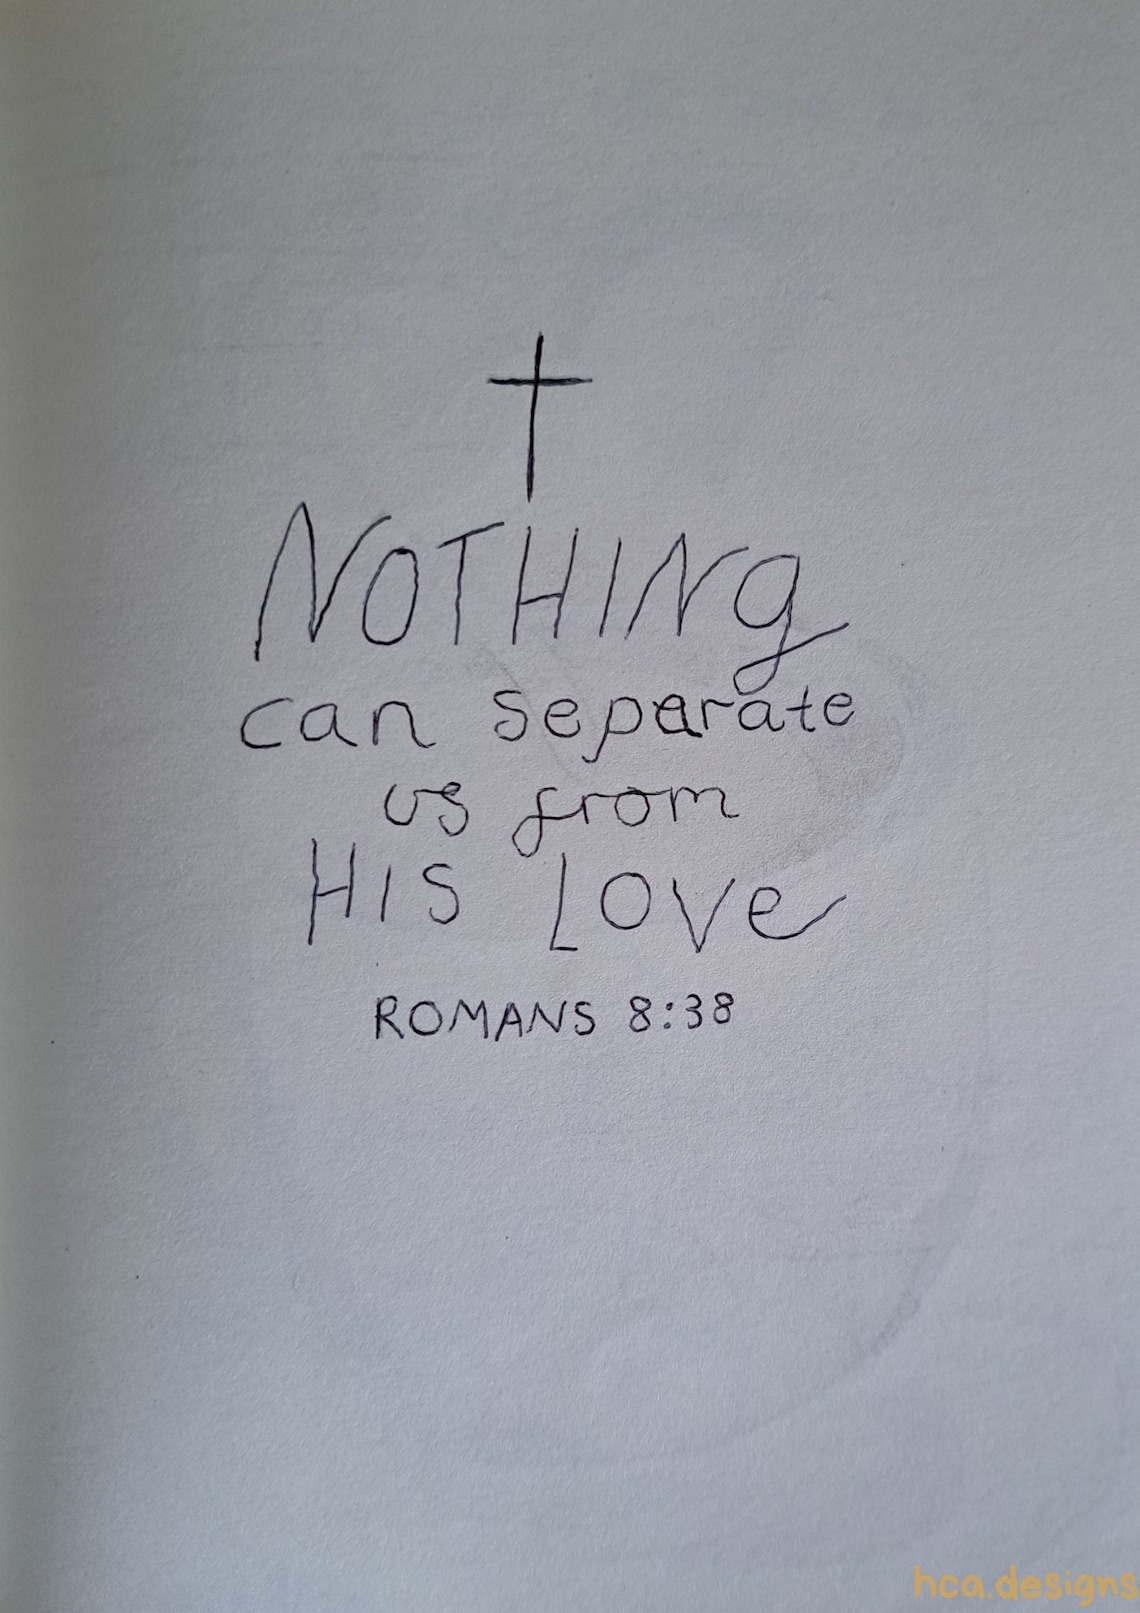 NOTHING
can separate
us from
HIS LOVE
ROMANS 8:38
hca.designs